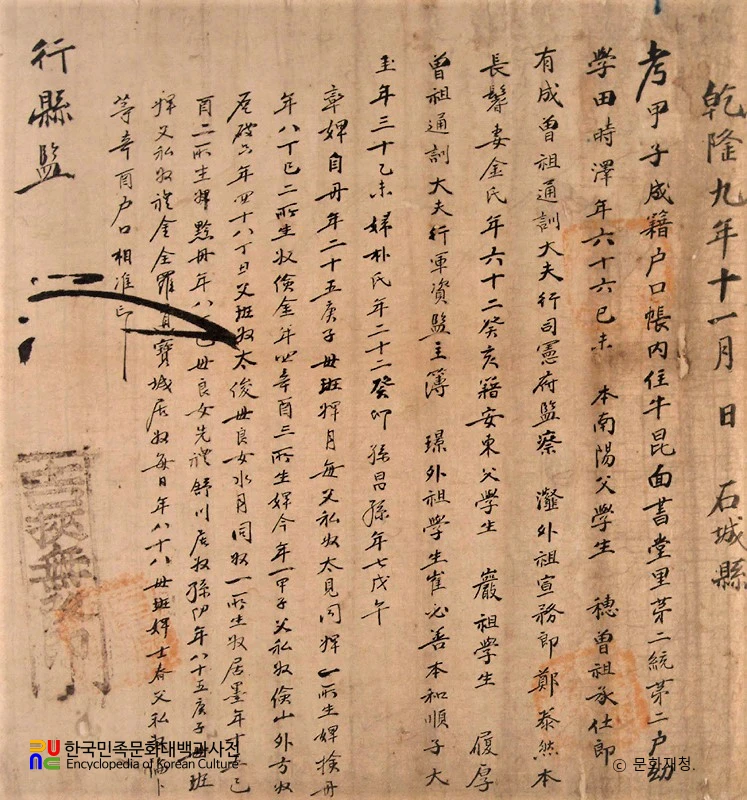 乾隆九年十一月 日 石城縣
考甲子成籍户口帳内住牛昆面書堂里苐二統苐二户幼
學田時澤年六十六己未 本南陽父學生 穗曾祖承仕郎
有成曽祖通訓大夫行司憲府監察 瀣外祖宣務郎 鄭泰然本
長鬐妻金氏年六十二癸亥籍安東父學生 巖祖學生 履厚
曽祖通訓大夫行軍資監主簿 璟外祖學生崔必善本和順子大
年三十乙未婦朴氏年二十二癸卯 孫昌孫年七戊午
率婢自丹年二十五庚子母班婢月每父私奴太見同婢一所生婢丹
年八丁巳二所生奴儉金年四辛酉三所生婢今年一甲子父私奴儉山外方奴
年四十八丁丑父班奴太俊母良女水月同奴一所生奴居墨年
酉二所生婢黙丹年八 母良女先禮舒川居奴孫 年八十五庚子 班
婢父私奴 金全羅 寶城居奴每日年八十八母班婢士春父私奴
等辛酉户口相准印
行縣監
한국민족문화대백과사전
Encyclopedia of Korean Culture
© 문화재청.